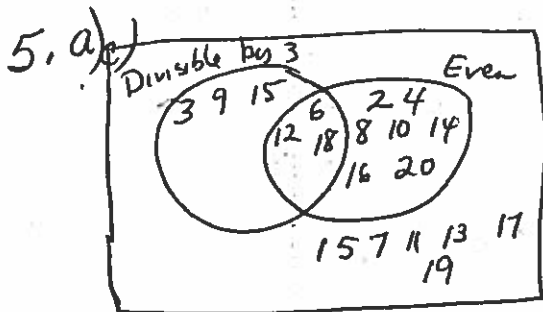 5. a) c)
Divisible by 3
Even
3 9 15
6
2 4
12 18 8 10 14
16 20
1 5 7 11 13 17
19